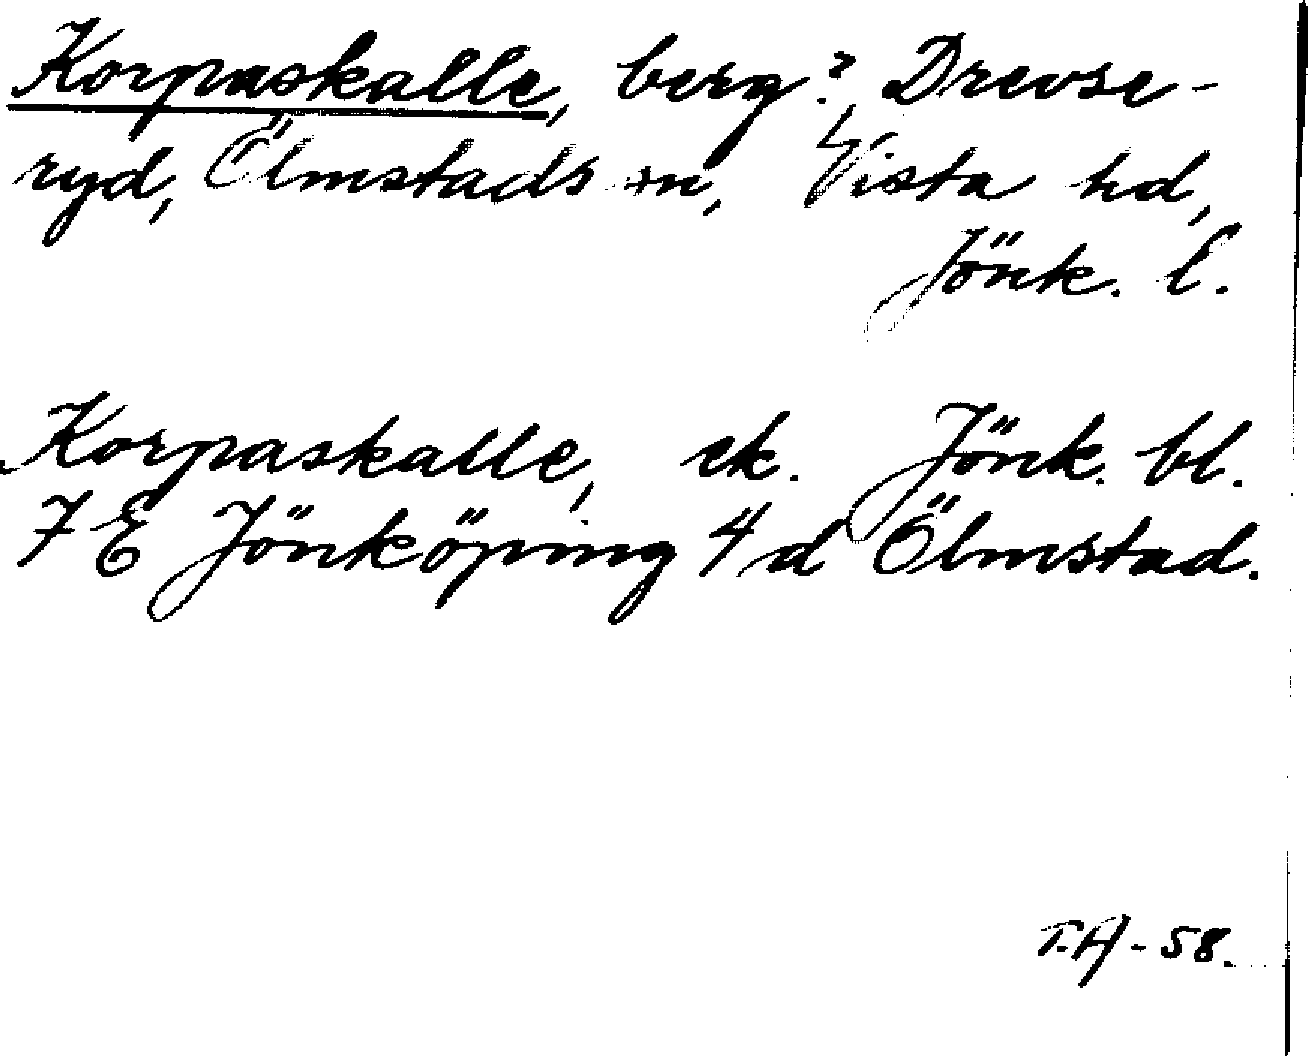 Korpaskalle, berg?, Drevse-
ryd, Ölmstads sn, Vista hd,
Jönk. l.
Korpaskalle, ek. Jönk. bl.
7 E Jönköping 4 d Ölmstad.
T.A-58.